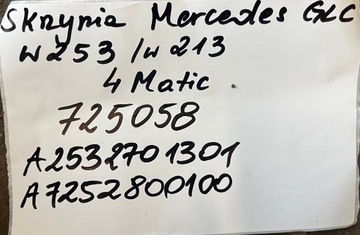 Skrzynia Mercedes GLC
W253 /W213
4 Matic .
725058
A2532701301
A7252800100